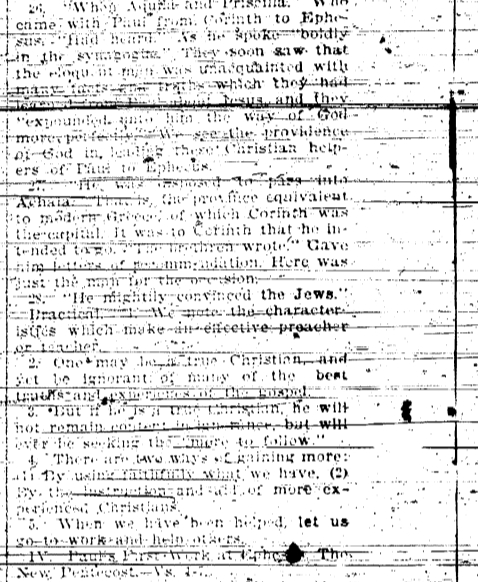 26. "When Aquila and Priscilla." Who
came with Paul from Corinth to Ephe-
sus. "Had heard." As he spoke "boldly
in the synagogue." They soon saw that
the eloquent man was unacquainted with
many facts and truths which they had
learned from Paul about Jesus, and they
"expounded unto him the way of God
more perfectly." We see the providence
of God in leading these Christian help-
ers of Paul to Ephesus.
27. "He was disposed to pass into
Achaia." That is, the province equivalent
to modern Greece, of which Corinth was
the capital. It was to Corinth that he in-
tended to go. "The brethren wrote." Gave
him letters of recommendation. Here was
just the man for the occasion.
28. "He mightily convinced the Jews."
Practical.—1. We note the character-
istics which make an effective preacher
or teacher.
2. One may be a true Christian, and
yet be ignorant of many of the best
truths and experiences of the gospel.
3. But if he is a true Christian, he will
not remain content, but will
ever be seeking the "more to follow."
4. There are two ways of gaining more:
(1) By using faithfully what we have. (2)
By the instruction and aid of more ex-
perienced Christians.
5. When we have been helped, let us
go to work and help others.
IV. Paul's First Work at Ephesus, The
New Pentecost.—Vs.